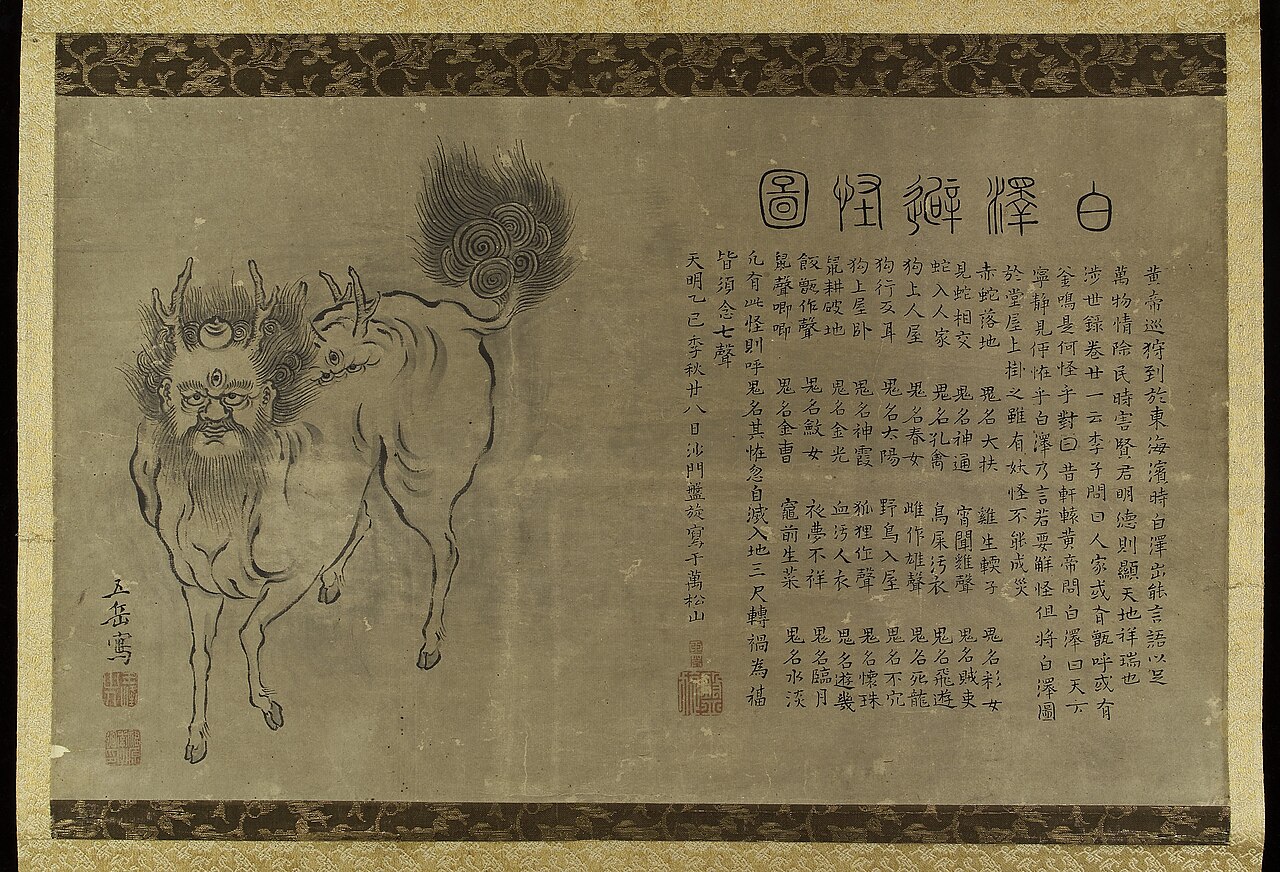 白澤避怪圖
黄帝巡狩到於東海濱時白澤出能言語以足
萬物情除民時害賢君明德則顯天地祥瑞也
涉世録巻廿一云李子問曰人家或有甑呼或有
釜鳴是何怪乎對曰昔軒轅黄帝問白澤曰天下
寧静見何恠乎白澤乃言若要解怪但將白澤圖
於堂屋上掛之雖有妖怪不能成災
赤蛇落地 鬼名大扶 雞生軟子 鬼名彩女
見蛇相交 鬼名神通 宵聞雞聲 鬼名賊吏
蛇入人家 鬼名孔禽 鳥屎污衣 鬼名飛遊
狗上人屋 鬼名春女 雌作雄聲 鬼名死龍
狗行反耳 鬼名大陽 野鳥入屋 鬼名不宂
狗上屋卧 鬼名神霞 狐狸作聲 鬼名懷珠
鼠耕破地 鬼名金光 血污人衣 鬼名遊幾
飯甑作聲 鬼名斂女 衣夢不祥 鬼名臨月
鼠聲唧唧 鬼名金曹 竈前生菜 鬼名水淡
凢有此怪則呼鬼名其恠忽自滅入地三尺轉禍為福
皆須念七聲
天明乙巳季秋廿八日沙門盤旋寫于萬松山
五岳寫